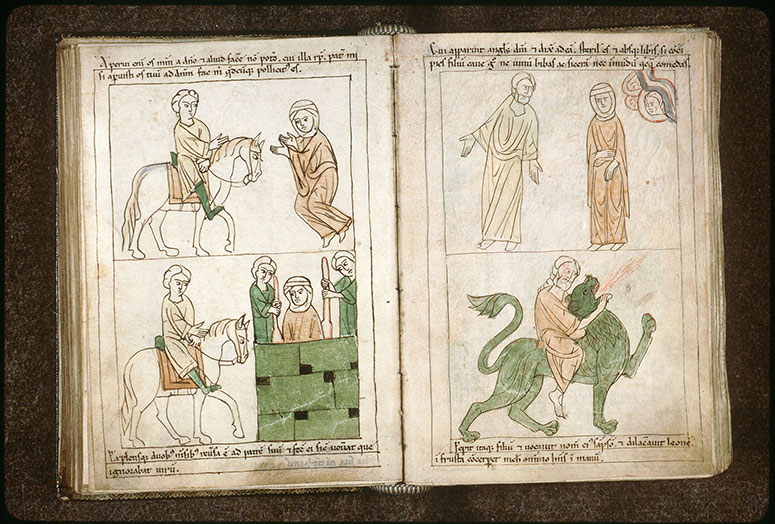 Aperui eni os min a dno & aliud face no poto. cui illa rp. pat mi
si apuisti os tuu ad dnm fac m qdcuq pollicit es.
Expletisq duob msib reusa e ad patre suu & fec ei sic uouat que
ignorabat uiru.
Cui apparuit angls dni & dix ad eā. steril es & absq libis, s; cōci
pies filiu caue g ne uinu bibas ac sicera nec inmdu qcq comedas.
Peperit itaq filiu & uocauit nom ei sapso & dilacauit leone
i frusta cocerpet nich omnino hns i manu.